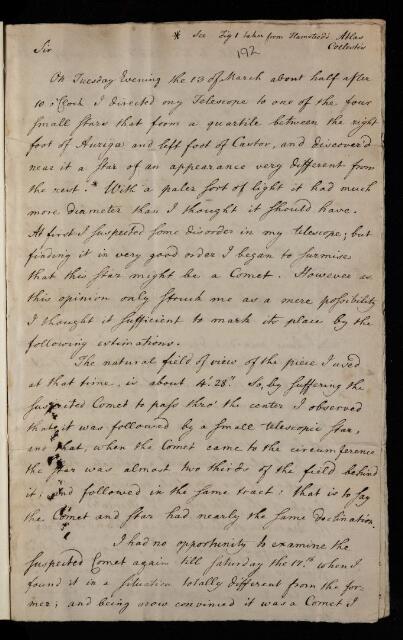 * See Fig 1 taken from Flamsteed's Atlas
Coelestis
192
Sir
On Tuesday Evening the 13 of March about half after
10 o'Clock I directed my Telescope to one of the four
small stars that form a quartile between the right
foot of Auriga and left foot of Castor, and discover'd
near it a star of an appearance very different from
the rest.* With a paler sort of light it had much
more diameter than I thought it should have.
At first I suspected some disorder in my telescope; but
finding it in very good order I began to surmise
that this star might be a Comet. However as
this opinion only struck me as a mere possibility
I thought it sufficient to mark its place by the
following estimations.
The natural field of view of the piece I used
at that time, is about 4'.28". So, by suffering the
suspected Comet to pass thro' the center I observed
that it was followed by a small telescopic star,
and that, when the Comet came to the circumference
the star was almost two thirds of the field behind
it; and followed in the same tract: that is to say
the Comet and star had nearly the same declination.
I had no opportunity to examine the
suspected Comet again till Saturday the 17.th when I
found it in a situation totally different from the for-
mer; and being now convinced it was a Comet I